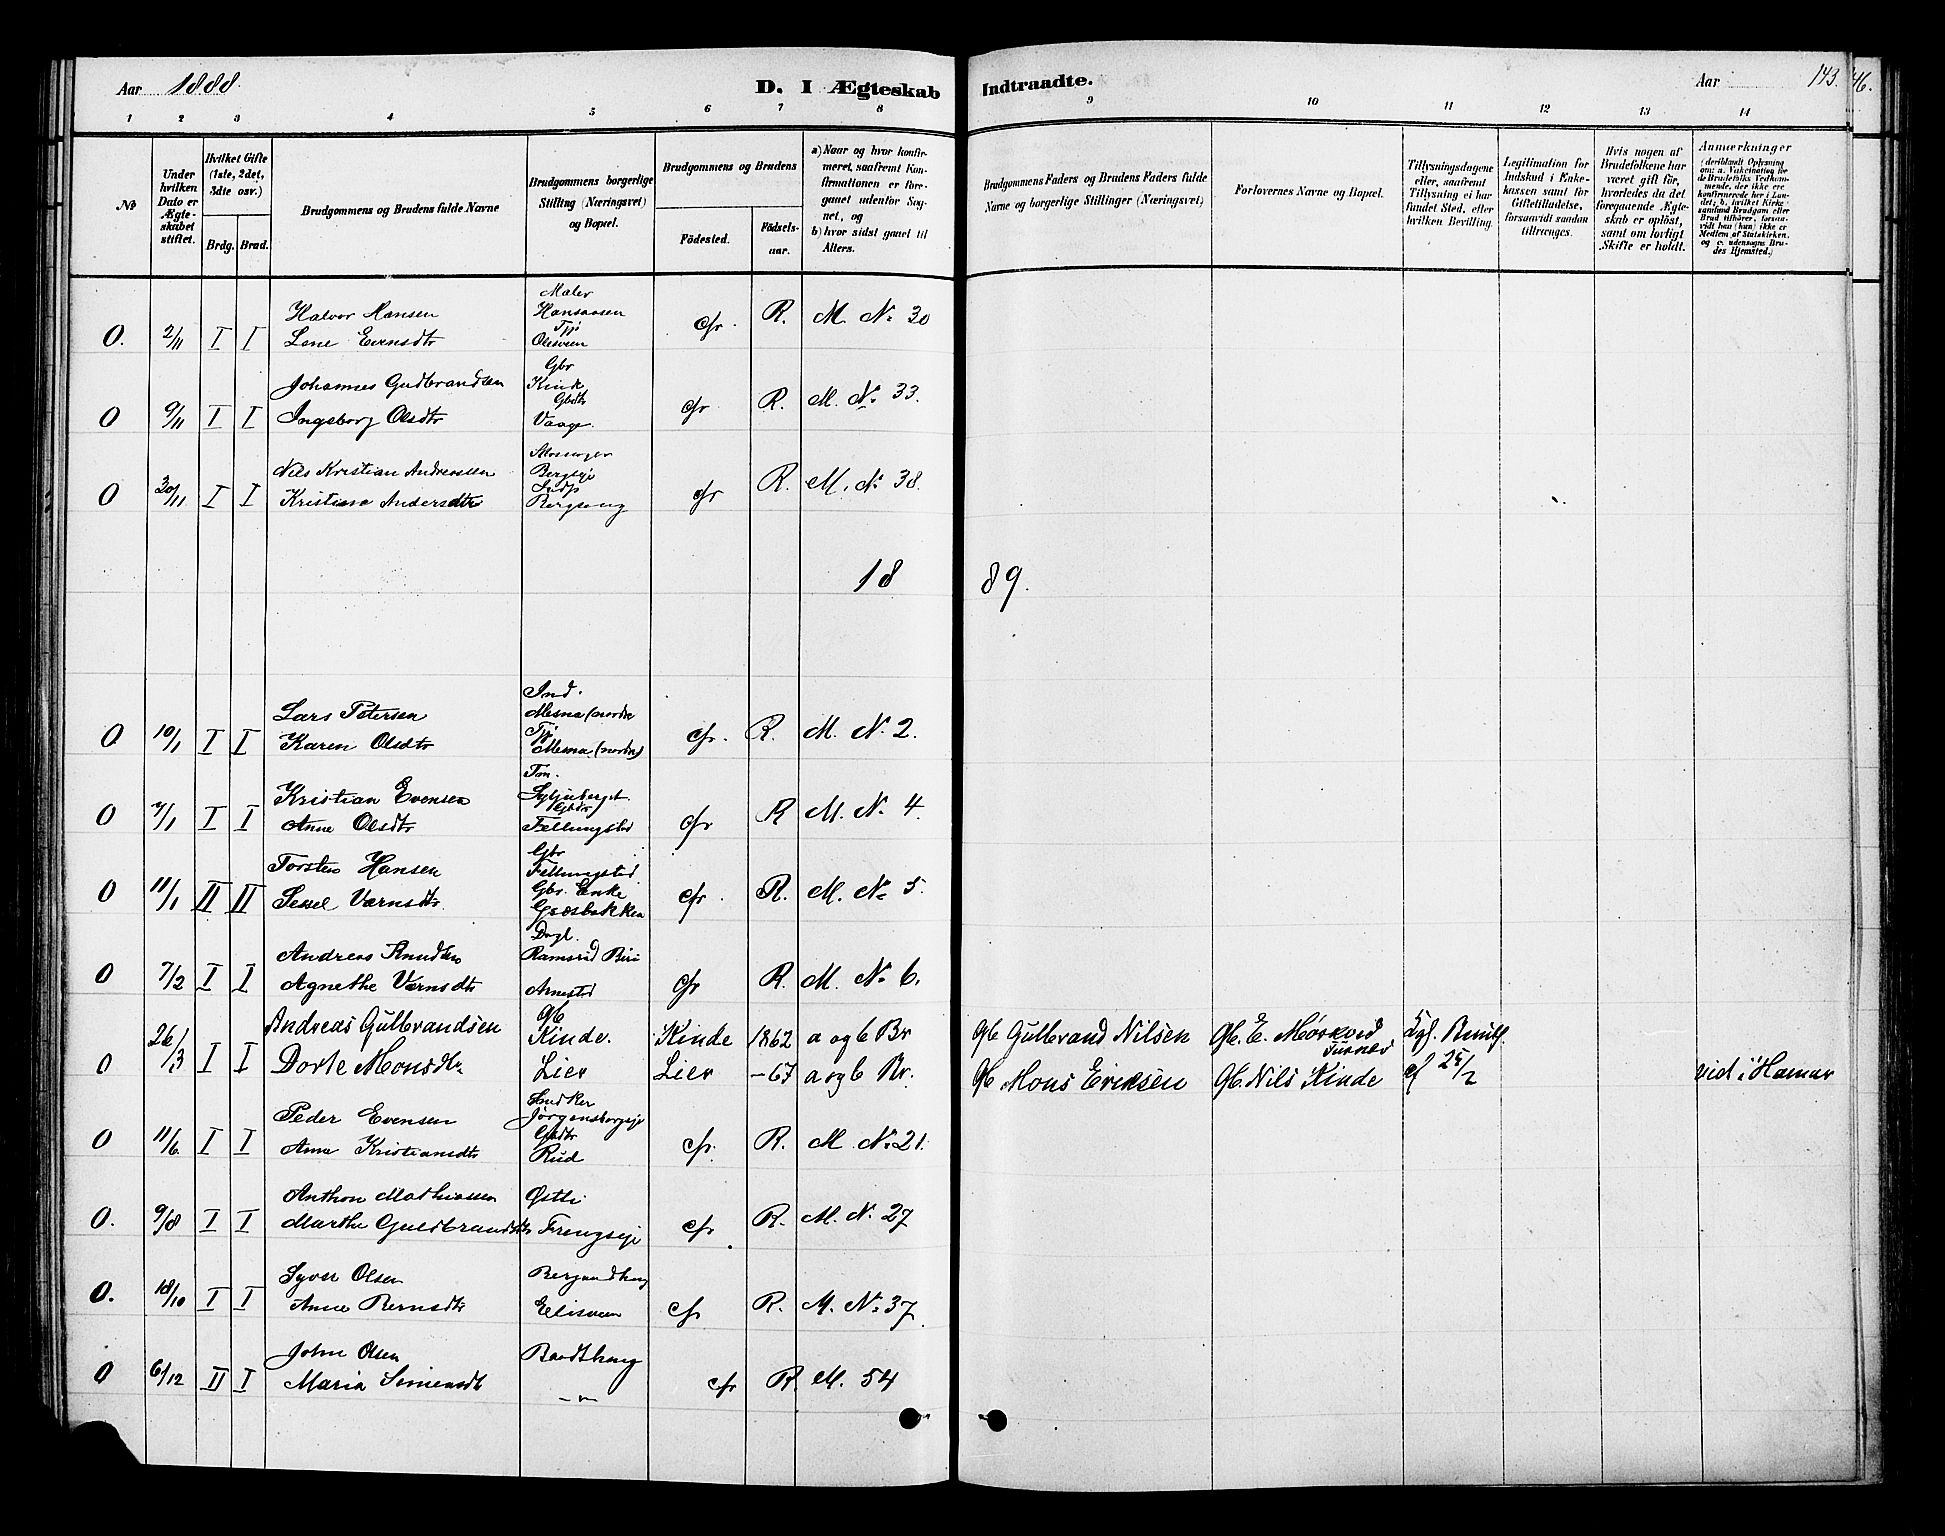 Aar 1888. D. I Ægteskab Indtraadte. Aar 143. 146.
1 2 3 4 5 6 7 8 9 10 11 12 13 14
No
Under hvilken Dato er Ægteskabet stiftet.
Hvilket Gifte (1ste, 2det, 3die osv.)
Brdg. Brud.
Brudgommens og Brudens fulde Navne
Brudgommens borgerlige Stilling (Næringsvei) og Bopæl.
Brudgommens og Brudens
Fødested.
Fødselsaar.
a) Naar og hvor konfirmeret, saafremt Konfirmationen er foregaaet udenfor Sognet, og
b) hvor sidst gaaet til Alters.
Brudgommens Faders og Brudens Faders fulde Navne og borgerlige Stillinger (Næringsvei)
Forlovernes Navne og Bopæl.
Tillysningsdagene eller, saafremt Tillysning ei har fundet Sted, efter hvilken Bevilling.
Legitimation for Indskud i Enkekassen samt for Giftetilladelse, forsaavidt saadan tiltrænges.
Hvis nogen af Brudefolkene har været gift før, hvorledes da det foregaaende Ægteskab er opløst, samt om lovligt Skifte er holdt.
Anmærkninger
(deriblandt Oplysning om: a. Vakcination for de Brudefolks Vedkommende, der ikke ere konfirmerede her i Landet; b. hvilket Kirkesamfund Brudgom eller Brud tilhører, forsaavidt han (hun) ikke er Medlem af Statskirken, og c. udensogns Brudes Hjemsted.)
Maler
Halvor Hansen Hansaasen R. M. No 30
0. 2/11 I I Tjp cfr.
Lene Evensdtr Olesveen
Gbr
Johannes Gudbrandsen Kinde R. M. No 33.
0 9/11 I I Gbdtr cfr
Ingeborg Olsdtr Vaage.
Nils Kristian Andreassen Bergseje R. M. No 38.
0 30/11 I I Indp cfr
Kristiane Andersdtr Bergseng
18 89.
Ind.
Lars Petersen Mesna (nordre
0 10/1 I I Tjp cfr. R. M. No 2.
Karen Olsdtr Mesna (nordre)
Tøm.
Kristian Evensen Syljuberget
0 7/1 I I Gbdtr cfr R M. No 4.
Anne Olsdtr Fellungstad
Gbr
Torsten Hansen Fellungstad
0 11/1 II II Gbr. Enke cfr. R. M. No 5.
Sessel Værnsdtr. Grøsbakken
Dagl.
Andreas Knudsen Ramsrud Biri
0 7/2 I I cfr R. M. No 6.
Agnethe Værnsdtr Arnestad
Gb
Andreas Gulbrandsen Kinde. Kinde 1862 a og b Br Gb Gulbrand Nilsen Gb. E. Mørkved Kgl. Bevill.
0 26/3 I I
Dorte Monsdtr Lier Lier –67 a og b Br. Gb Mons Eriksen Gb. Nils Kinde af 25/2 vid i Hamar
Snedker
Peder Evensen Jørgensborgseje
0 11/6. I I Gbdtr cfr. R. M. No 21.
Anne Kristiansdtr Rud
Anthon Mathiassen Østli
0. 9/8 I I cfr R. M. No. 27
Marthe Guldbrandsdtr Frengseje
Syver Olsen Berjordhaug
0. 18/10 I I cfr R. M. No 37
Anne Berntsdtr Elisveen
John Olsen Baadshaug
0 6/12 II I cfr R. M. 54
Maria Simensdtr –"–